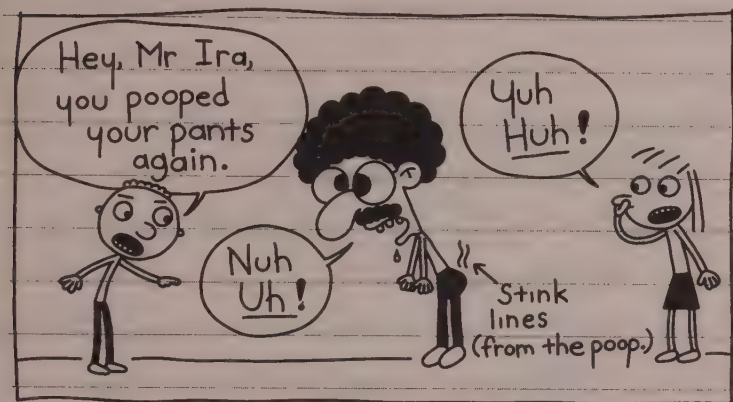 Hey, Mr Ira,
you pooped
your pants
again.
Nuh
Uh!
Yuh
Huh!
Stink
lines
(from the poop.)